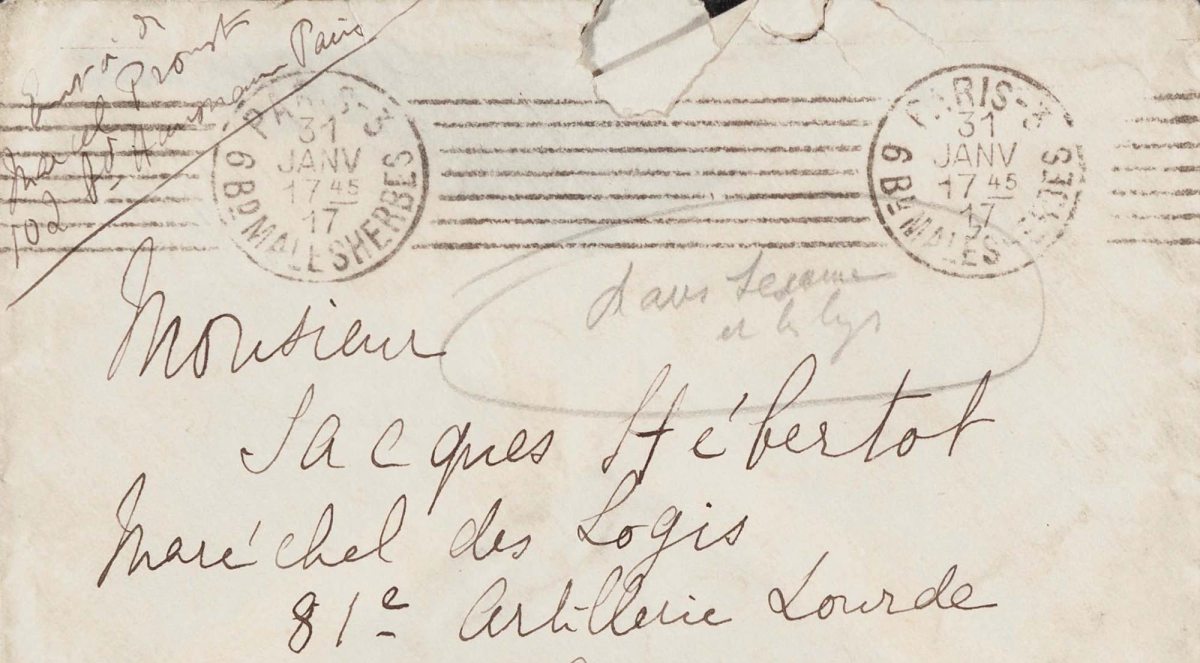 Envoi de
Marcel Proust
102 Bd Haussmann Paris
PARIS-3
31
JANV
17 45
17
6 BD MALESHERBES
PARIS-3
31
JANV
17 45
17
6 BD MALESHERBES
dans Sesame
et les lys
Monsieur
Jacques Hébertot
Maréchel des Logis
81e Artillerie Lourde